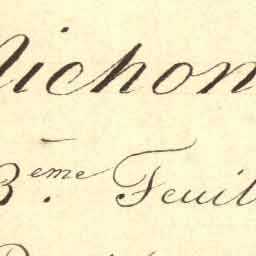 Nichon
3.ème Feuil